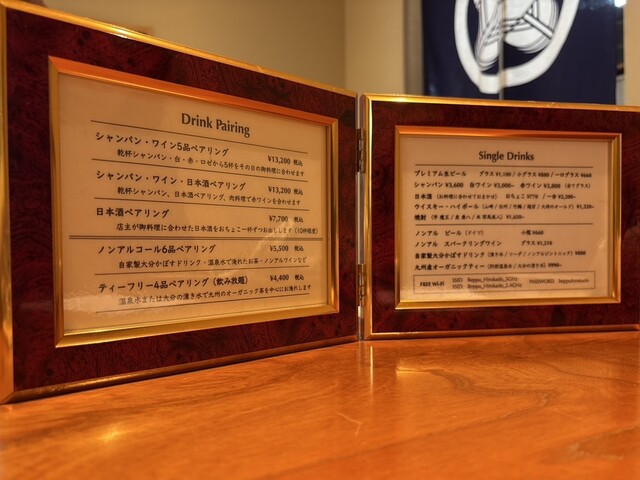 Drink Pairing
シャンパン・ワイン5品ペアリング ¥13,200 税込
乾杯シャンパン・白・赤・ロゼから5杯をその日の御料理に合わせます
シャンパン・ワイン・日本酒ペアリング ¥13,200 税込
乾杯シャンパン、日本酒ペアリング、肉料理で赤ワインを合わせます
日本酒ペアリング ¥7,700 税込
店主が御料理に合わせた日本酒をおちょこ一杯ずつお出しします(10杯程度)
ノンアルコール6品ペアリング ¥5,500 税込
自家製大分かぼすドリンク・温泉水で淹れたお茶・ノンアルワインなど
ティーフリー4品ペアリング(飲み放題) ¥4,400 税込
温泉水または大分の湧き水で九州のオーガニック茶を中心にお淹れします
Single Drinks
プレミアム生ビール グラス¥1,100 / 小グラス¥880 / 一口グラス¥660
シャンパン ¥3,600 白ワイン ¥2,000~ 赤ワイン ¥2,800 (全てグラス)
日本酒 (お料理に合わせておまかせ) おちょこ ¥770 / 一合 ¥2,200~
ウイスキー・ハイボール ¥1,320~
焼酎 ¥1,650~
ノンアル ビール [ドイツ] 小瓶 ¥660
ノンアル スパークリングワイン グラス ¥1,210
自家製大分かぼすドリンク ¥880
九州産オーガニックティー ¥990~
FREE Wi-Fi SSID Beppu_Hirokado_5GHz PASSWORD
SSID Beppu_Hirokado_2.4GHz